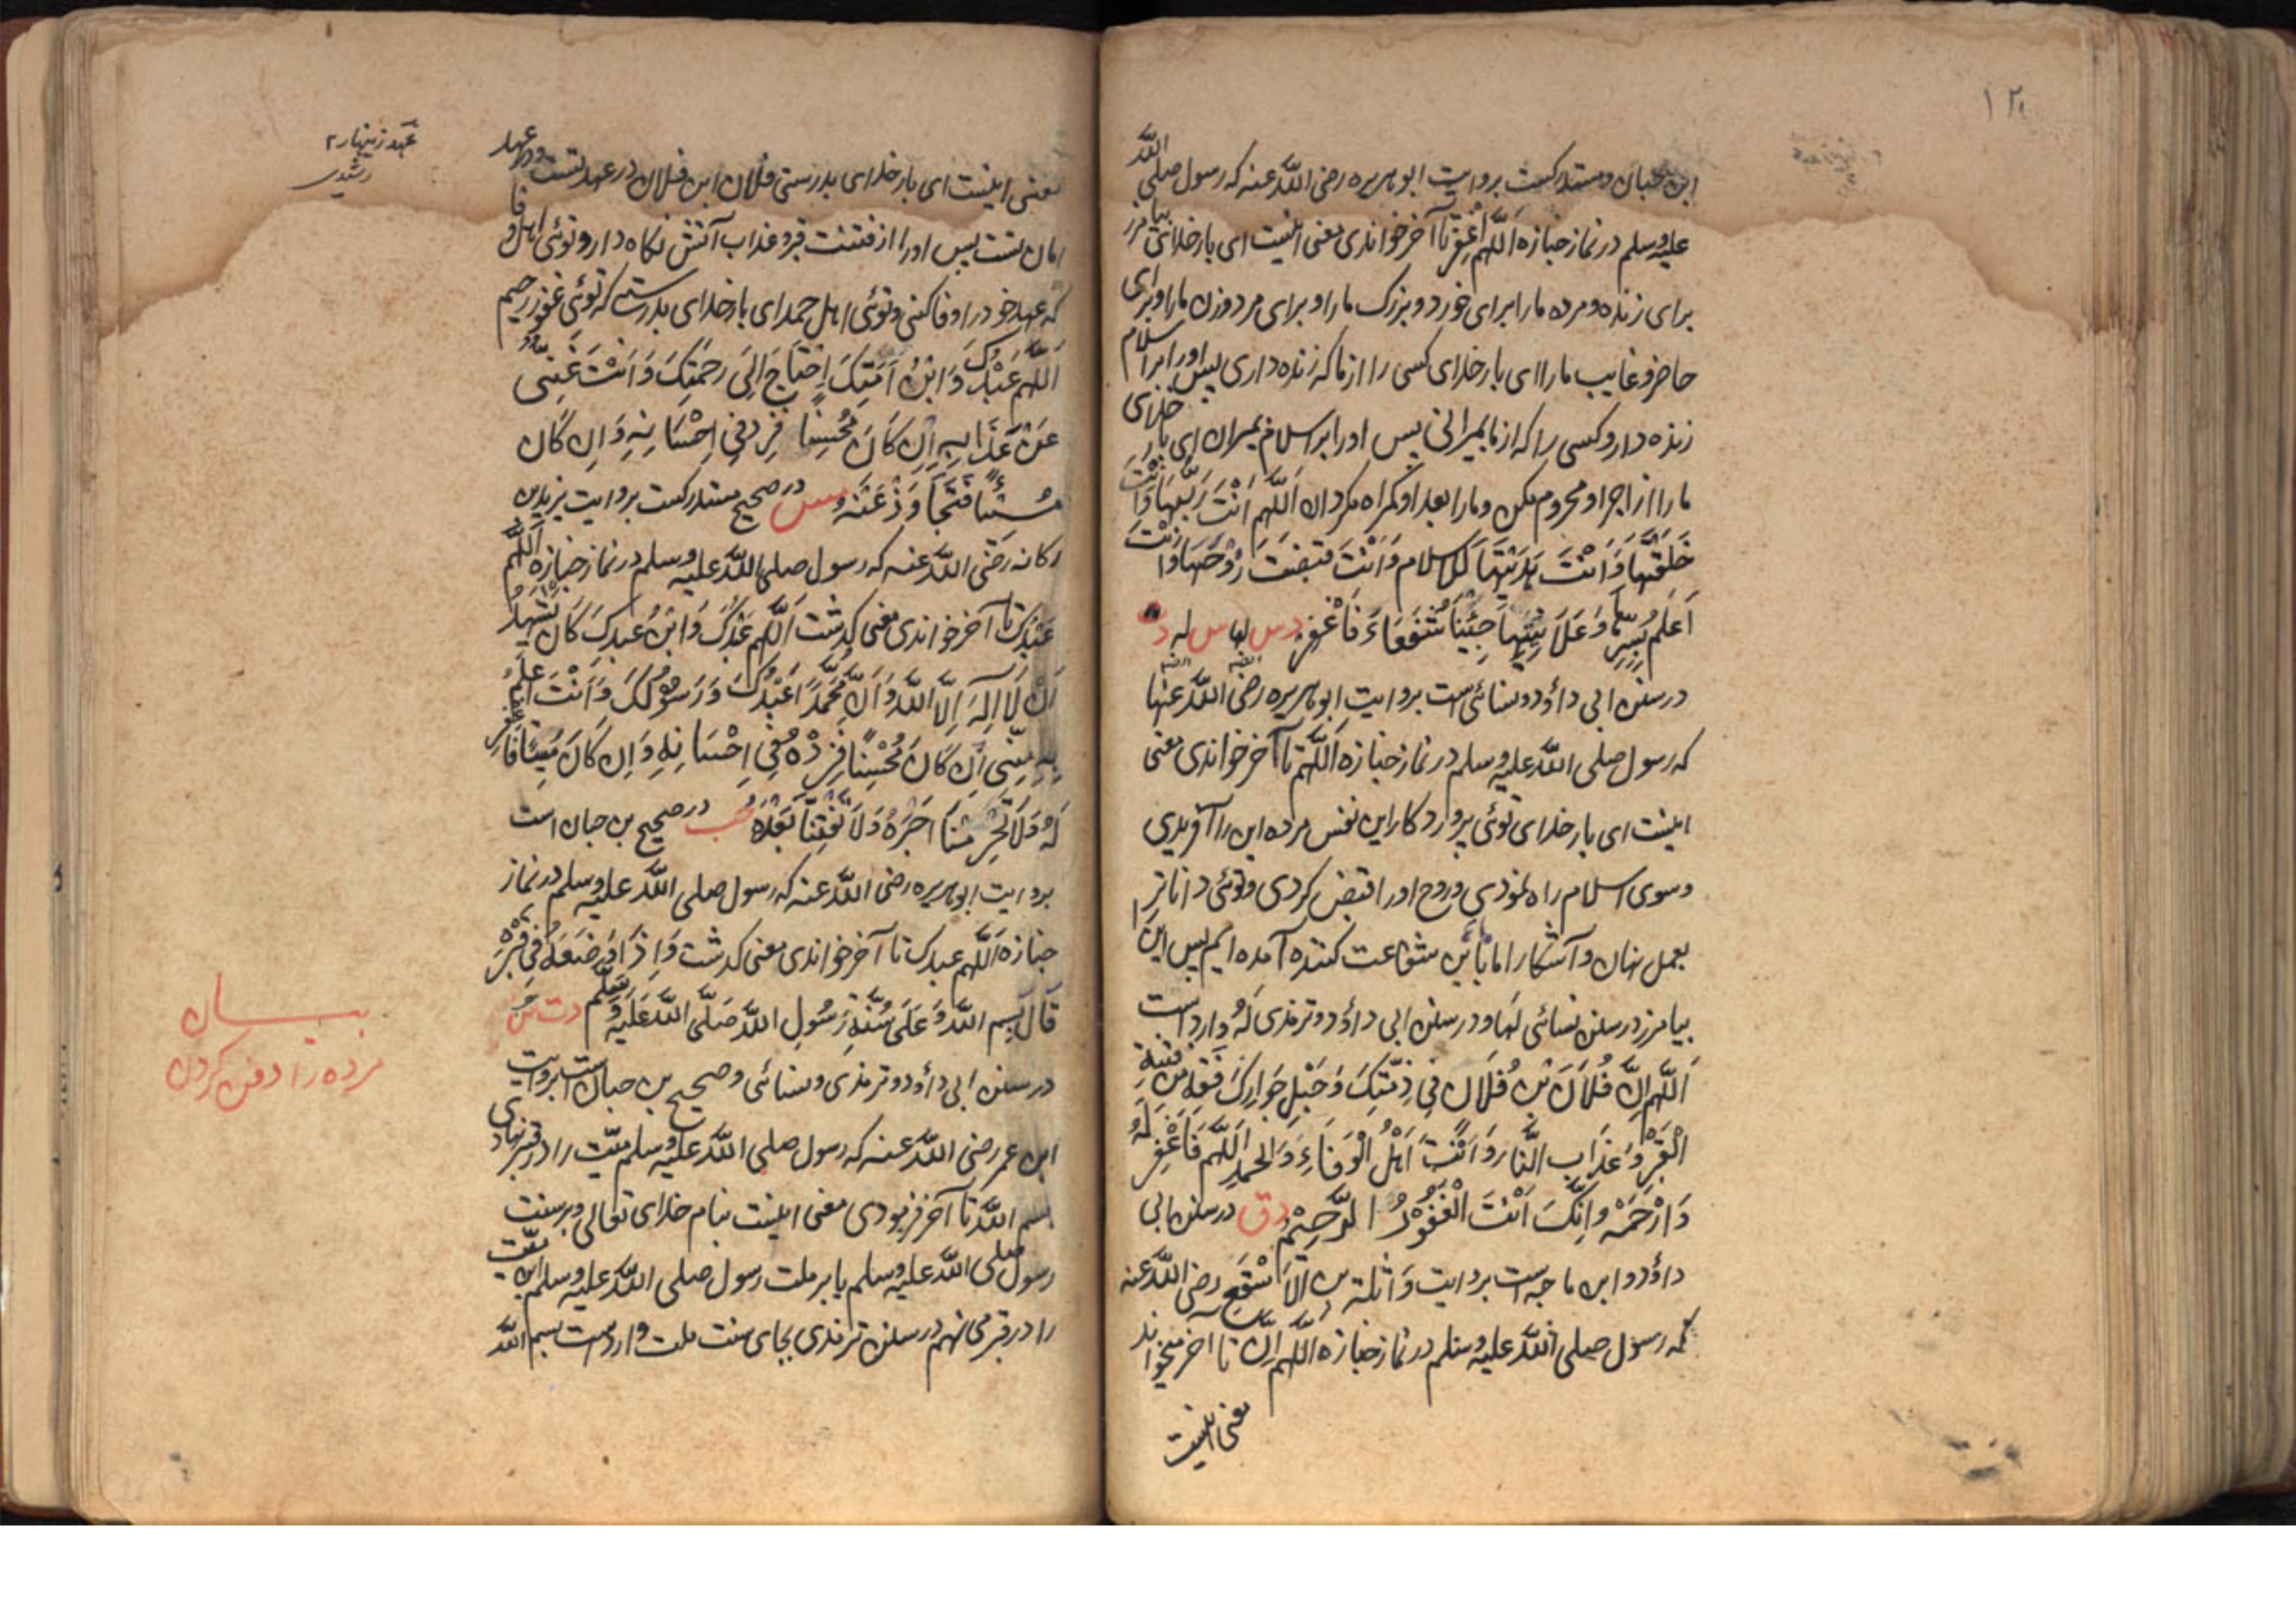 ۱۲۰
ابن حبان و مستدرکست بروایت ابوهریره رضی الله عنه که رسول صلی الله
علیه وسلم در نماز جنازه اَللّهم اغْفِرْ تا آخر خواندی معنی اینست ای بارخدای بیامرز
برای زنده و مرده ما را برای خورد و بزرگ ما را و برای مرد و زن ما را و برای
حاضر و غایب ما را ای بارخدای کسی را از ما که زنده داری پس او را بر اسلام
زنده دار و کسی را که از ما بمیرانی پس او را بر اسلام بمیران ای بار خدای
ما را از اجر او محروم مکن و ما را بعد او گمراه مگردان اَللّهم اَنْتَ رَبُّهَا وَاَنْتَ
خَلَقْتَهَا وَاَنْتَ هَدَیْتَهَا للاسلام وَاَنْتَ قبضت رُوْحَهَا وَاَنْتَ
اَعْلَمُ بِسِرِّهَا وَعَلَانِیَتِهَا جِئْنَا شُفَعَاءَ فَاغْفِرْ د س لها س له د ت
در سنن ابی داؤد و نسائی است بروایت ابوهریره رضی الله عنها
که رسول صلی الله علیه وسلم در نماز جنازه اَللّهم تا آخر خواندی معنی
اینست ای بارخدای توئی پروردکار این نفس مرده این را آفریدی
و سوی اسلام راه نمودی و روح او را قبض کردی و توئی داناتر
بعمل نهان و آشکارا ما شفاعت کننده آمده ایم پس این
بیامرز در سنن نسائی لها و در سنن ابی داؤد و ترمذی لَهُ وارد است
اَللّهم اِنَّ فُلَانَ بْنَ فُلَانٍ فِی ذِمَّتِکَ وَحَبْلِ جِوَارِکَ فَقِهِ مِنْ فِتْنَةِ
الْقَبْرِ وَعَذَابِ النَّارِ وَاَنْتَ اَهْلُ الْوَفَاءِ وَالحمدِ اَللّهم فَاغْفِرْ لَهُ
وَارْحَمْهُ اِنَّکَ اَنْتَ الْغَفُوْرُ الرَّحِیْمُ د ق در سنن ابی
داؤد و ابن ماجه است بروایت وَاثلة بن الاَسْقَعِ رضی الله عنه
که رسول صلی الله علیه وسلم در نماز جنازه اللّهم اِنَّ تا آخر میخواند
معنی اینست
معنی اینست ای بارخدای بدرستی فلان ابن فلان در عهد تست و در عهد
امان تست پس او را از فتنت قبر و عذاب آتش نکاه دار و توئی اهل وفا
که عهد خود را وفا کنی و توئی اهل حمد ای بارخدای بدرستی که توئی غفور رحیم
اَللّهم عَبْدُکَ وَابْنُ اَمَتِکَ اِحْتَاجَ اِلَی رَحْمَتِکَ وَاَنْتَ غَنِیٌّ
عَنْ عَذَابِهِ اِنْ کَانَ مُحْسِنًا فَزِدْ فِی اِحْسَانِهِ وَاِنْ کَانَ
مُسِیْئًا فَتَجَاوَزْ عَنْهُ مس در صحیح مستدرکست بروایت یزید بن
رکانه رضی الله عنه که رسول صلی الله علیه وسلم در نماز جنازه اللّهم
عَبْدُکَ تا آخر خواندی معنی کدشت اَللّهم عَبْدُکَ وَابْنُ عَبدِکَ کَانَ یَشْهَدُ
اَنْ لَا اِلٰهَ اِلَّا اللّهُ وَاَنَّ مُحَمَّدًا عَبْدُکَ وَرَسُوْلُکَ وَاَنْتَ اَعْلَمُ
بِهِ مِنِّی اِنْ کَانَ مُحْسِنًا فَزِدْهُ فِی اِحْسَانِهِ وَاِنْ کَانَ مُسِیْئًا فَاغْفِرْ
لَهُ وَلَا تَحْرِمْنَا اَجْرَهُ وَلَا تَفْتِنَّا بَعْدَهُ حب در صحیح بن حبان است
بروایت ابوهریره رضی الله عنه که رسول صلی الله علیه وسلم در نماز
جنازه اَللّهم عبدک تا آخر خواندی معنی کدشت وَاِذَا وَضَعَهُ فِی قَبْرِهِ
قَالَ بِسْمِ اللّهِ وَعَلَی سُنَّةِ رَسُولِ اللّهِ صَلَّی اللّه عَلَیْهِ وَسَلَّم د ت س حب
در سنن ابی داؤد و ترمذی و نسائی و صحیح بن حبان است بروایت
ابن عمر رضی الله عنه که رسول صلی الله علیه وسلم میّت را در قبر نهادی
بسم الله تا آخر فرمودی معنی اینست بنام خدای تعالی و بر سنت
رسول صلی الله علیه وسلم یا بر ملت رسول صلی الله علیه وسلم این میّت
را در قبر می نهم در سنن ترمذی بجای سنت ملت وارد است بسم الله
عهد زینهار ۲
رشیدی
بیان
مرده را دفن کردن